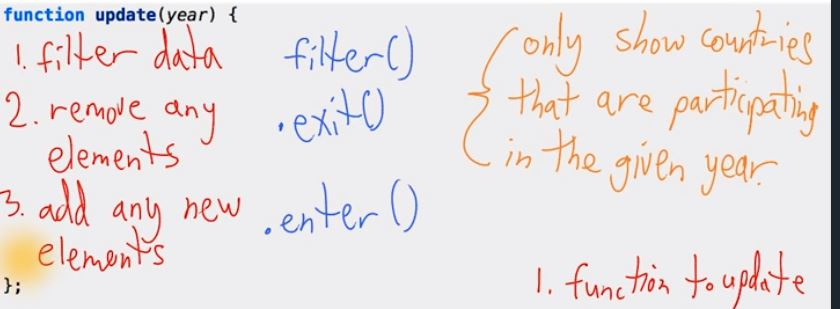 function update(year) {
1. filter data filter()
2. remove any elements .exit()
3. add any new elements .enter()
};
{ only show countries
that are participating
in the given year.
1. function to update